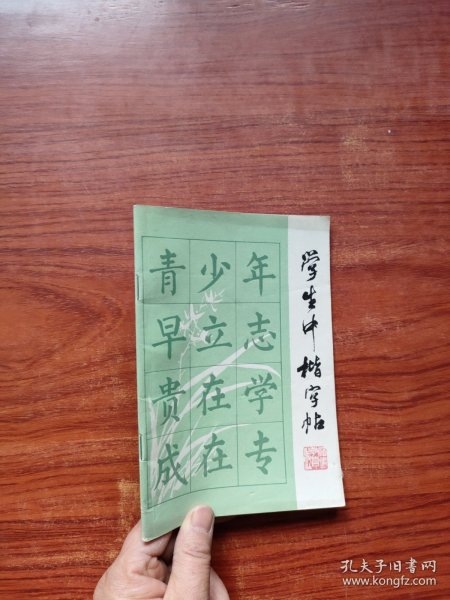 青少年
早立志
贵在学
成在专
学生中楷字帖
孔夫子旧书网
www.kongfz.com